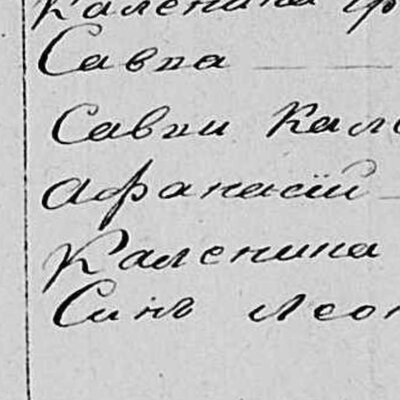 Каленина
Савка
Савки Кал
Афанасій
Каленина
Синъ Леон